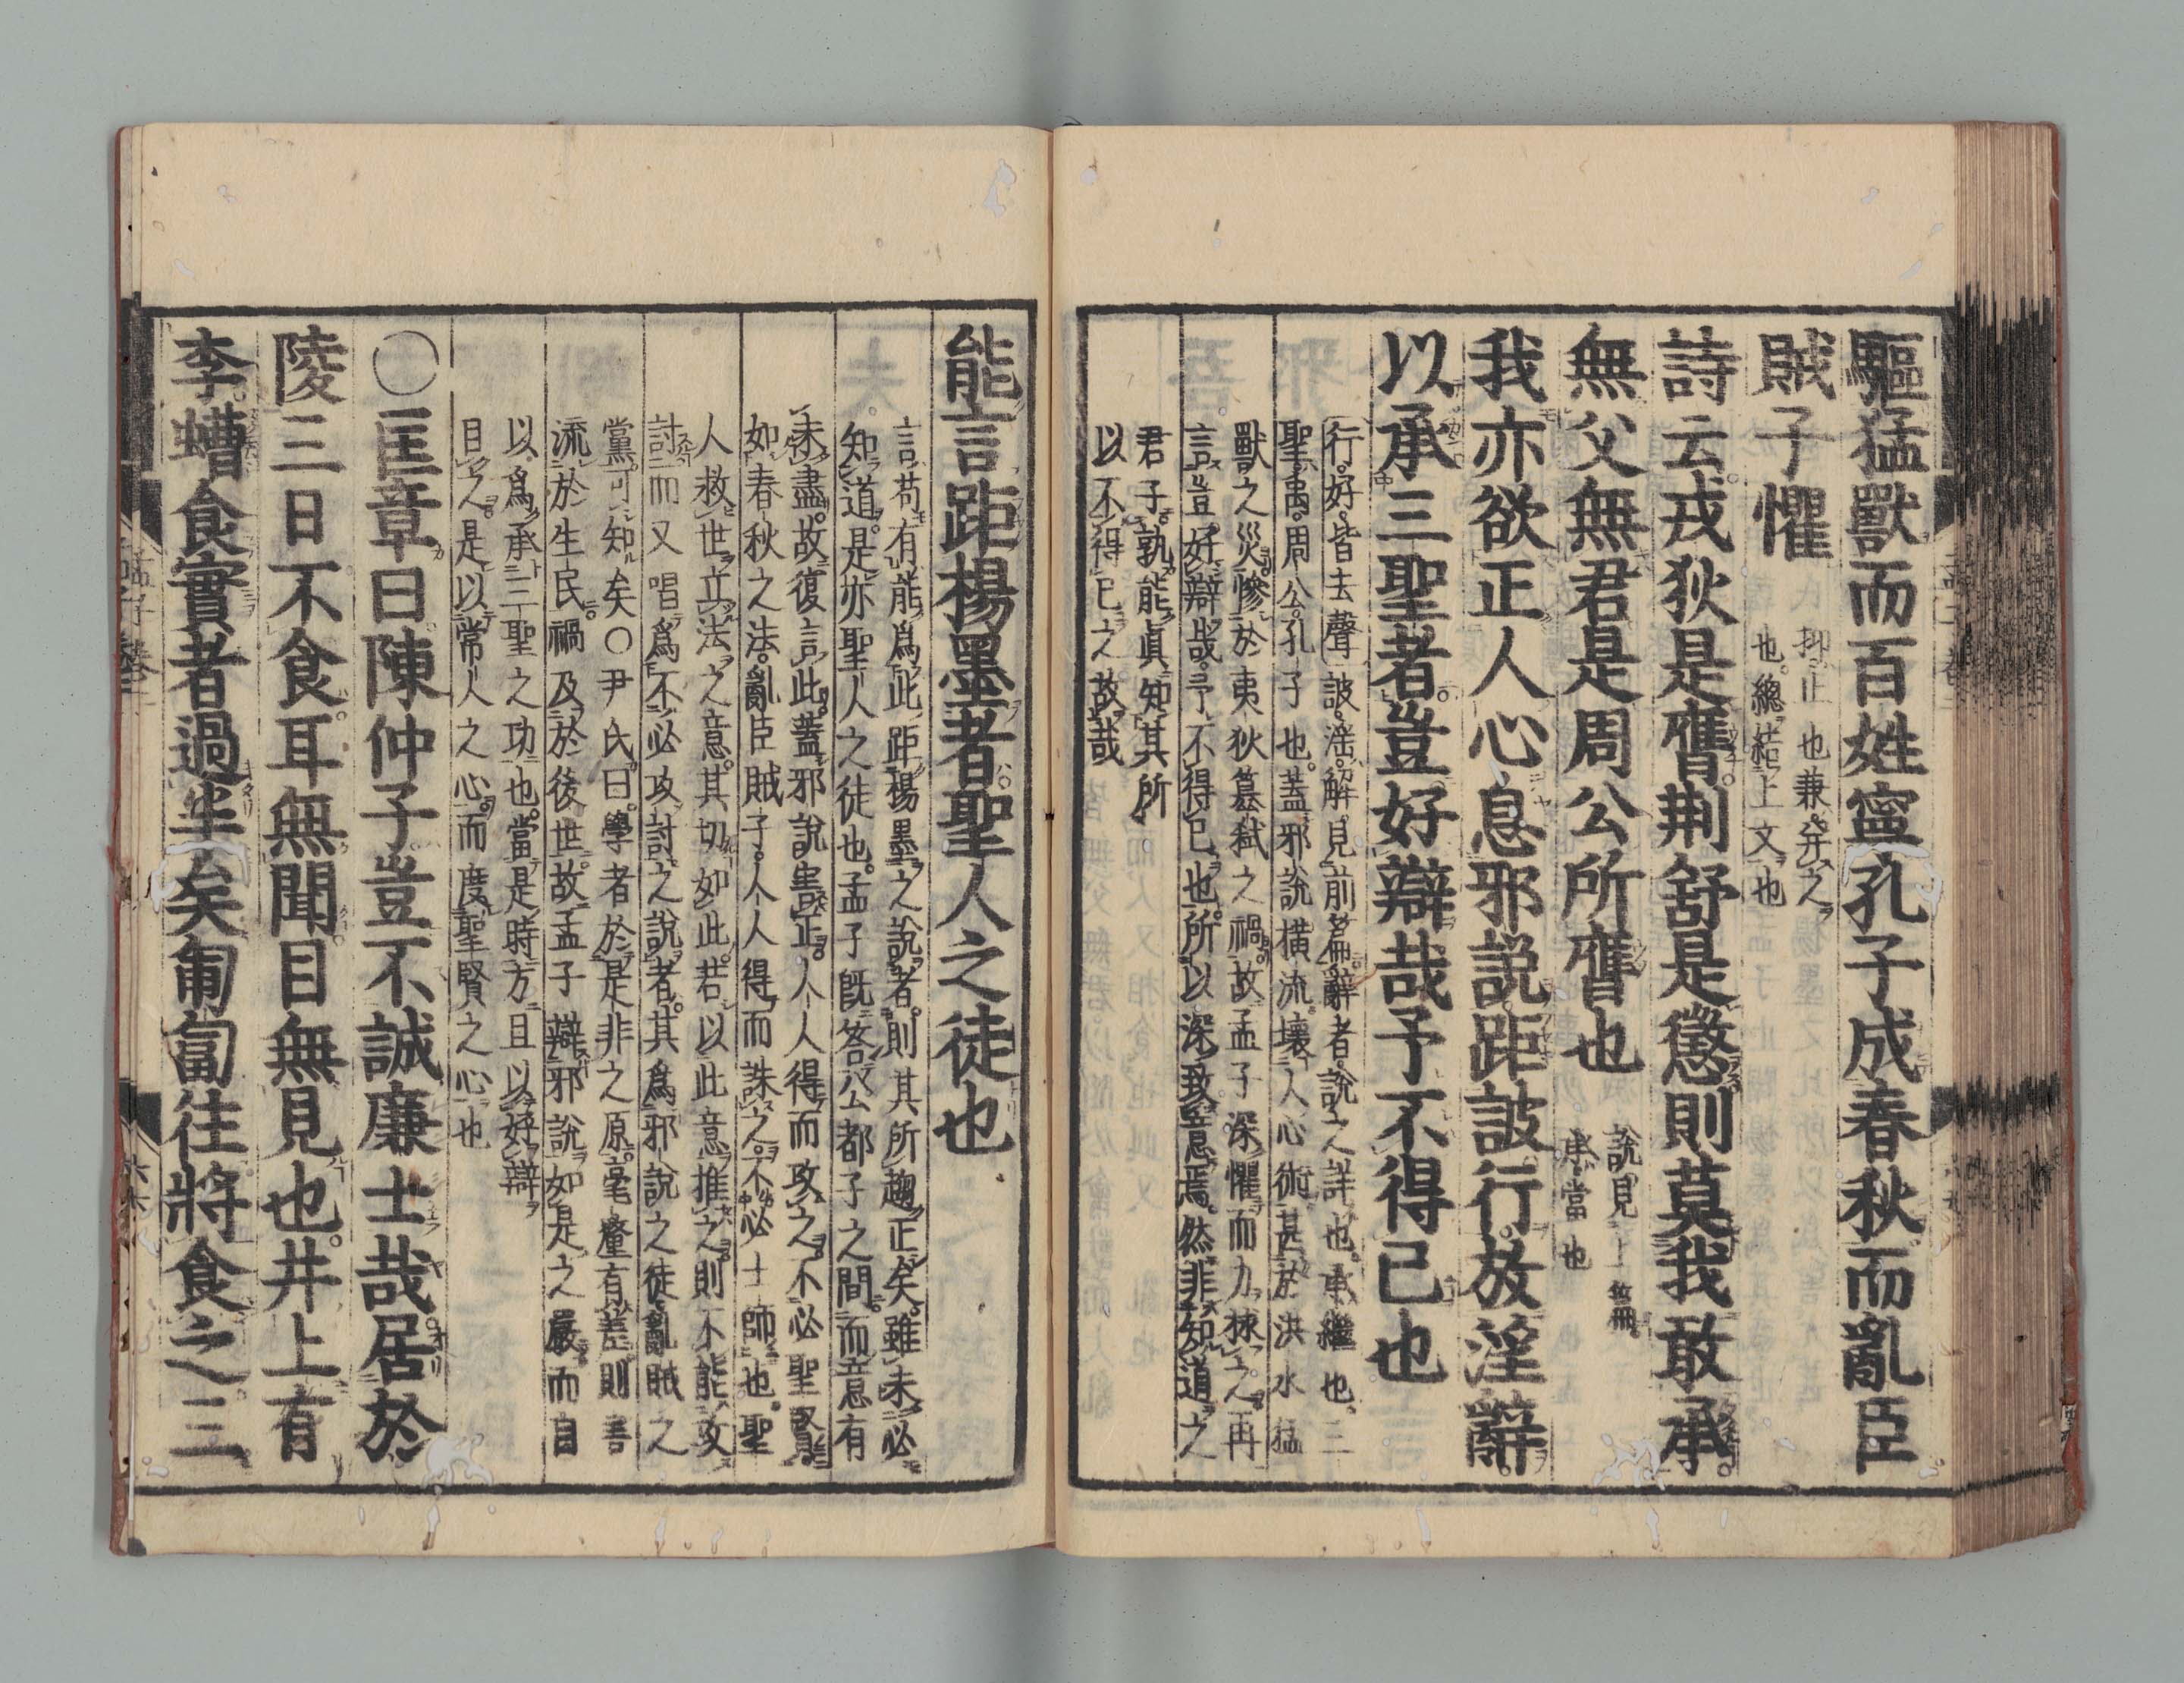 驅猛獸而百姓寧孔子成春秋而亂臣
賊子懼
抑止也兼并之
也總結上文也
詩云戎狄是膺荆舒是懲則莫我敢承
無父無君是周公所膺也
說見上篇
承當也
我亦欲正人心息邪說距詖行放淫辭
以承三聖者豈好辯哉予不得已也
行好皆去聲詖淫解見前篇辭者說之詳也承繼也三
聖禹周公孔子也蓋邪說橫流壞人心術甚於洪水猛
獸之災慘於夷狄篡弑之禍故孟子深懼而力救之再
言豈好辯哉予不得已也所以深致意焉然非知道之
君子孰能眞知其所
以不得已之故哉
能言距楊墨者聖人之徒也
言苟有能爲此距楊墨之說者則其所趨正矣雖未必
知道是亦聖人之徒也孟子旣答公都子之間而意有
未盡故復言此蓋邪說害正人人得而攻之不必聖賢
如春秋之法亂臣賊子人人得而誅之不必士師也聖
人救世立法之意其切如此若以此意推之則不能攻
討而又唱爲不必攻討之說者其爲邪說之徒亂賊之
黨可知矣○尹氏曰學者於是非之原毫釐有差則害
流於生民禍及於後世故孟子辯邪說如是之嚴而自
以爲承三聖之功也當是時方且以好辯
目之是以常人之心而度聖賢之心也
○匡章曰陳仲子豈不誠廉士哉居於
陵三日不食耳無聞目無見也井上有
李螬食實者過半矣匍匐往將食之三